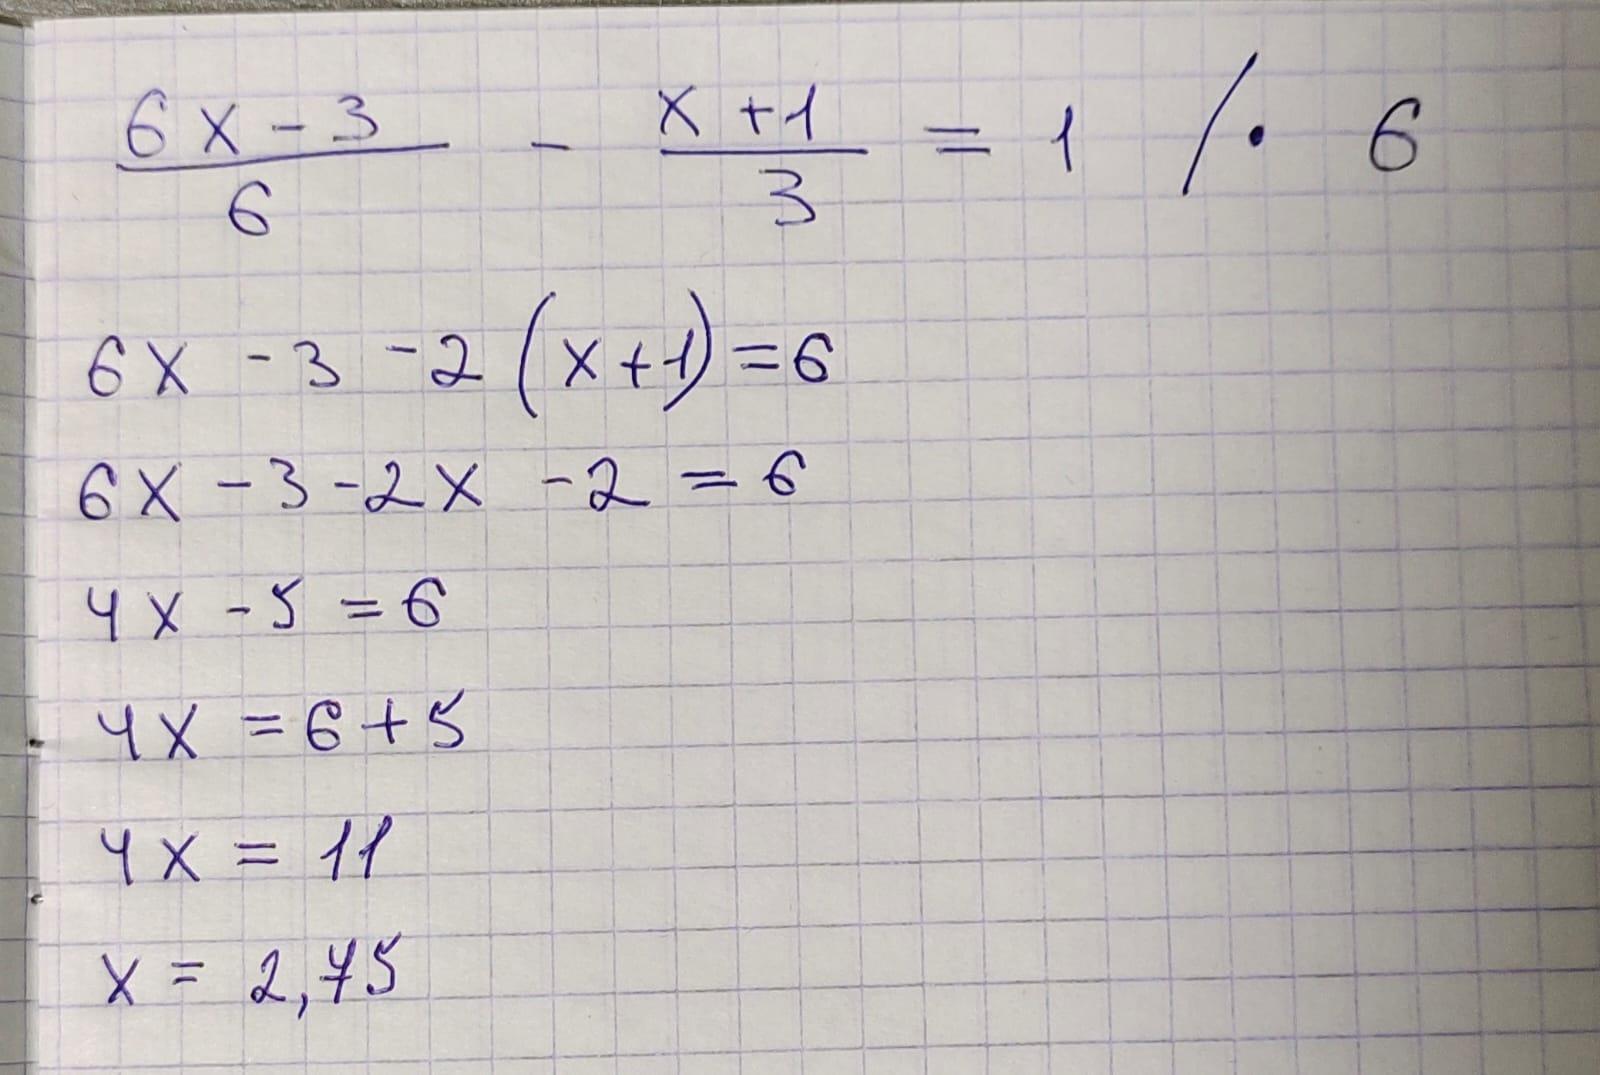 (6x - 3)/6 - (x + 1)/3 = 1 /· 6
6x - 3 - 2(x + 1) = 6
6x - 3 - 2x - 2 = 6
4x - 5 = 6
4x = 6 + 5
4x = 11
x = 2,75